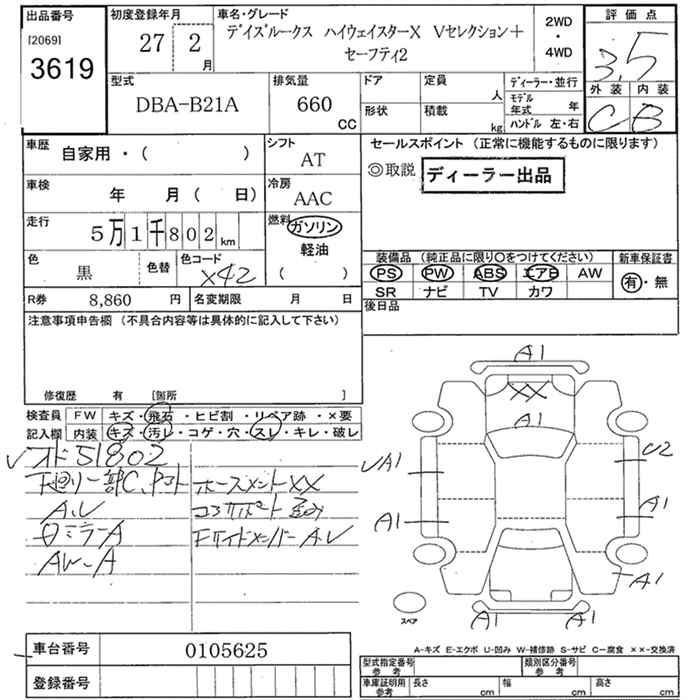 出品番号 初度登録年月 車名・グレード 2WD・4WD 評価点
[2069] 3619
27 2月
デイズルークス ハイウェイスターX Vセレクション+
セーフティ2
3.5
外装 内装
C B
型式 排気量 ドア 定員 人 ディーラー・並行
DBA-B21A 660 CC
形状 積載 kg モデル年式 年
ハンドル 左・右
車歴 自家用・( ) シフト AT
セールスポイント (正常に機能するものに限ります)
◎取説 ディーラー出品
車検 年 月 ( 日) 冷房 AAC
走行 5万1千802km 燃料 ガソリン
軽油
( )
色 黒 色替 色コード X42
装備品 (純正品に限り○をつけてください) 新車保証書
PS PW ABS エアB AW 有・無
SR ナビ TV カワ
R券 8,860 円 名変期限 月 日
後日品
注意事項申告欄 (不具合内容等は具体的に記入して下さい)
修復歴 有 [箇所 ]
検査員 FW キズ・飛石・ヒビ割・リペア跡・×要
記入欄 内装 キズ・汚レ・コゲ・穴・スレ・キレ・破レ
オド51802
下廻り一部C、サビ
A.U
ミラーA
AW-A
XX
Fサイドメンバー A.U
A1
XX
A1
UA1
U2
A1
A1
A1
A1
A1
スペア
車台番号 0105625
登録番号
A-キズ E-エクボ U-凹み W-補修跡 S-サビ C-腐食 ××-交換済
型式指定番号 参考 類別区分番号 参考
車庫証明用 参考 長さ cm 幅 cm 高さ cm